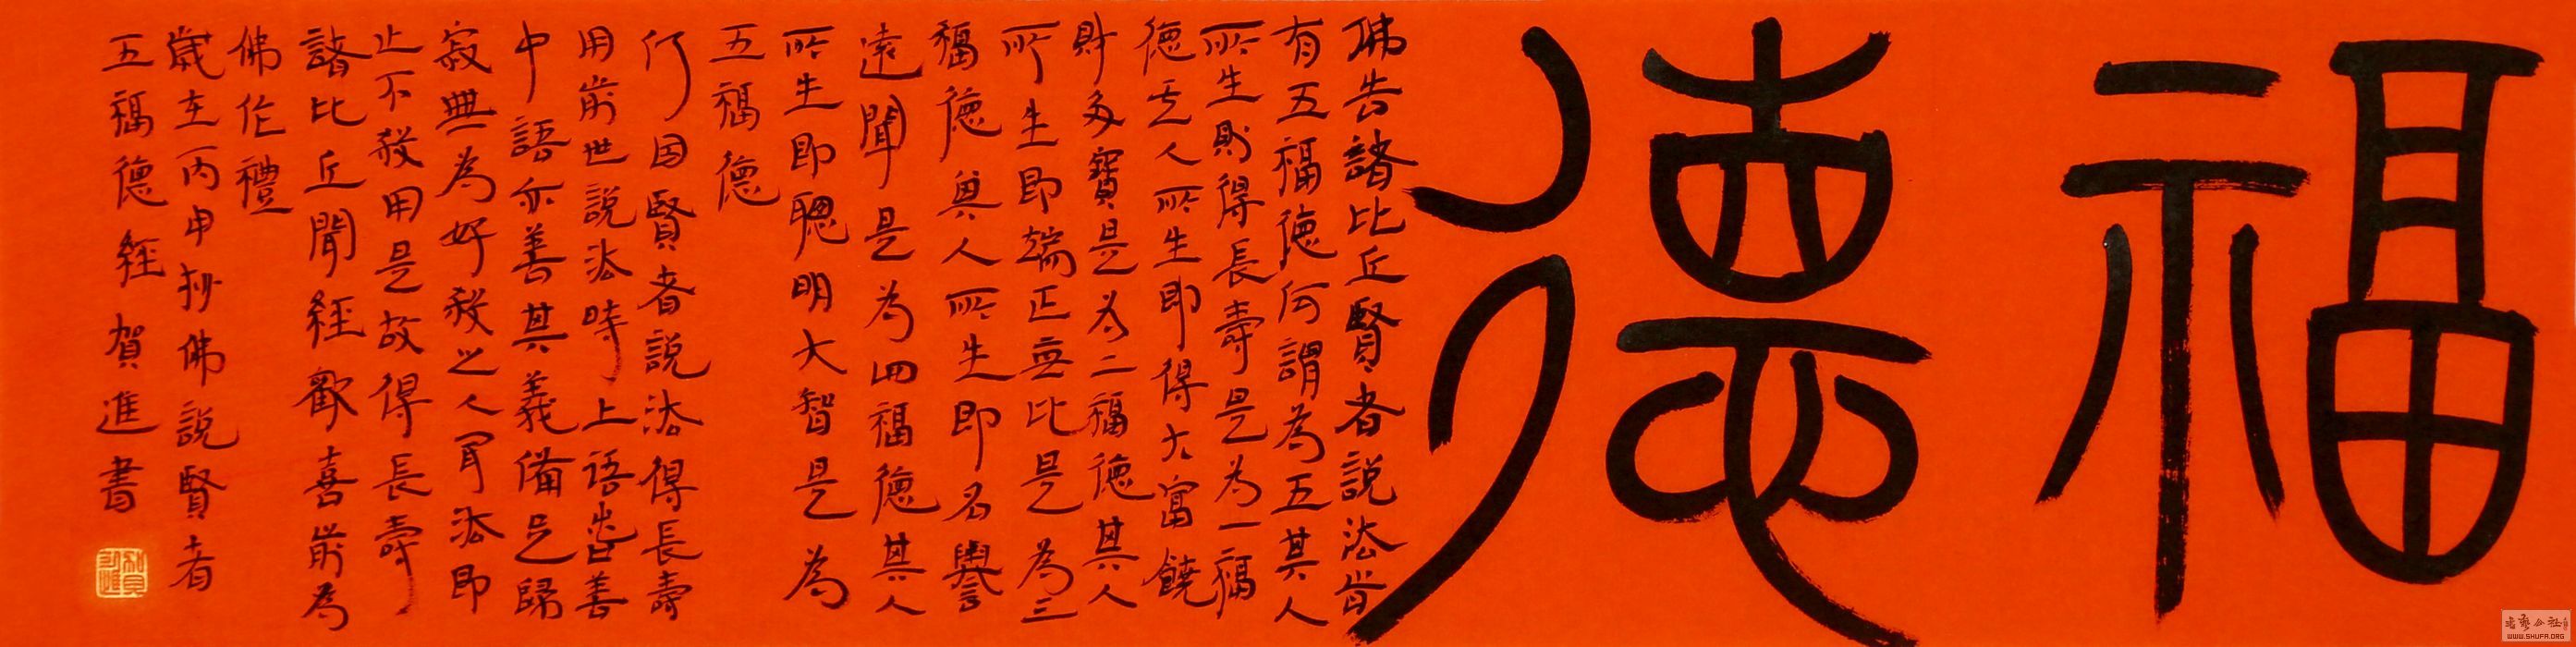 福德
佛告諸比丘賢者說法旹
有五福德何謂為五其人
所生則得長壽是為一福
德其人所生即得大富饒
財多寶是為二福德其人
所生即端正無比是為三
福德其人所生即名譽
遠聞是為四福德其人
所生即聰明大智是為
五福德
何因賢者說法得長壽
用前世說法時上語皆善
中語亦善其義備足歸
寂無為好殺之人聞法即
止不殺用是故得長壽
諸比丘聞經歡喜前為
佛作禮
歲在丙申抄佛說賢者
五福德經 賀進書
书艺公社
WWW.SHUFA.ORG